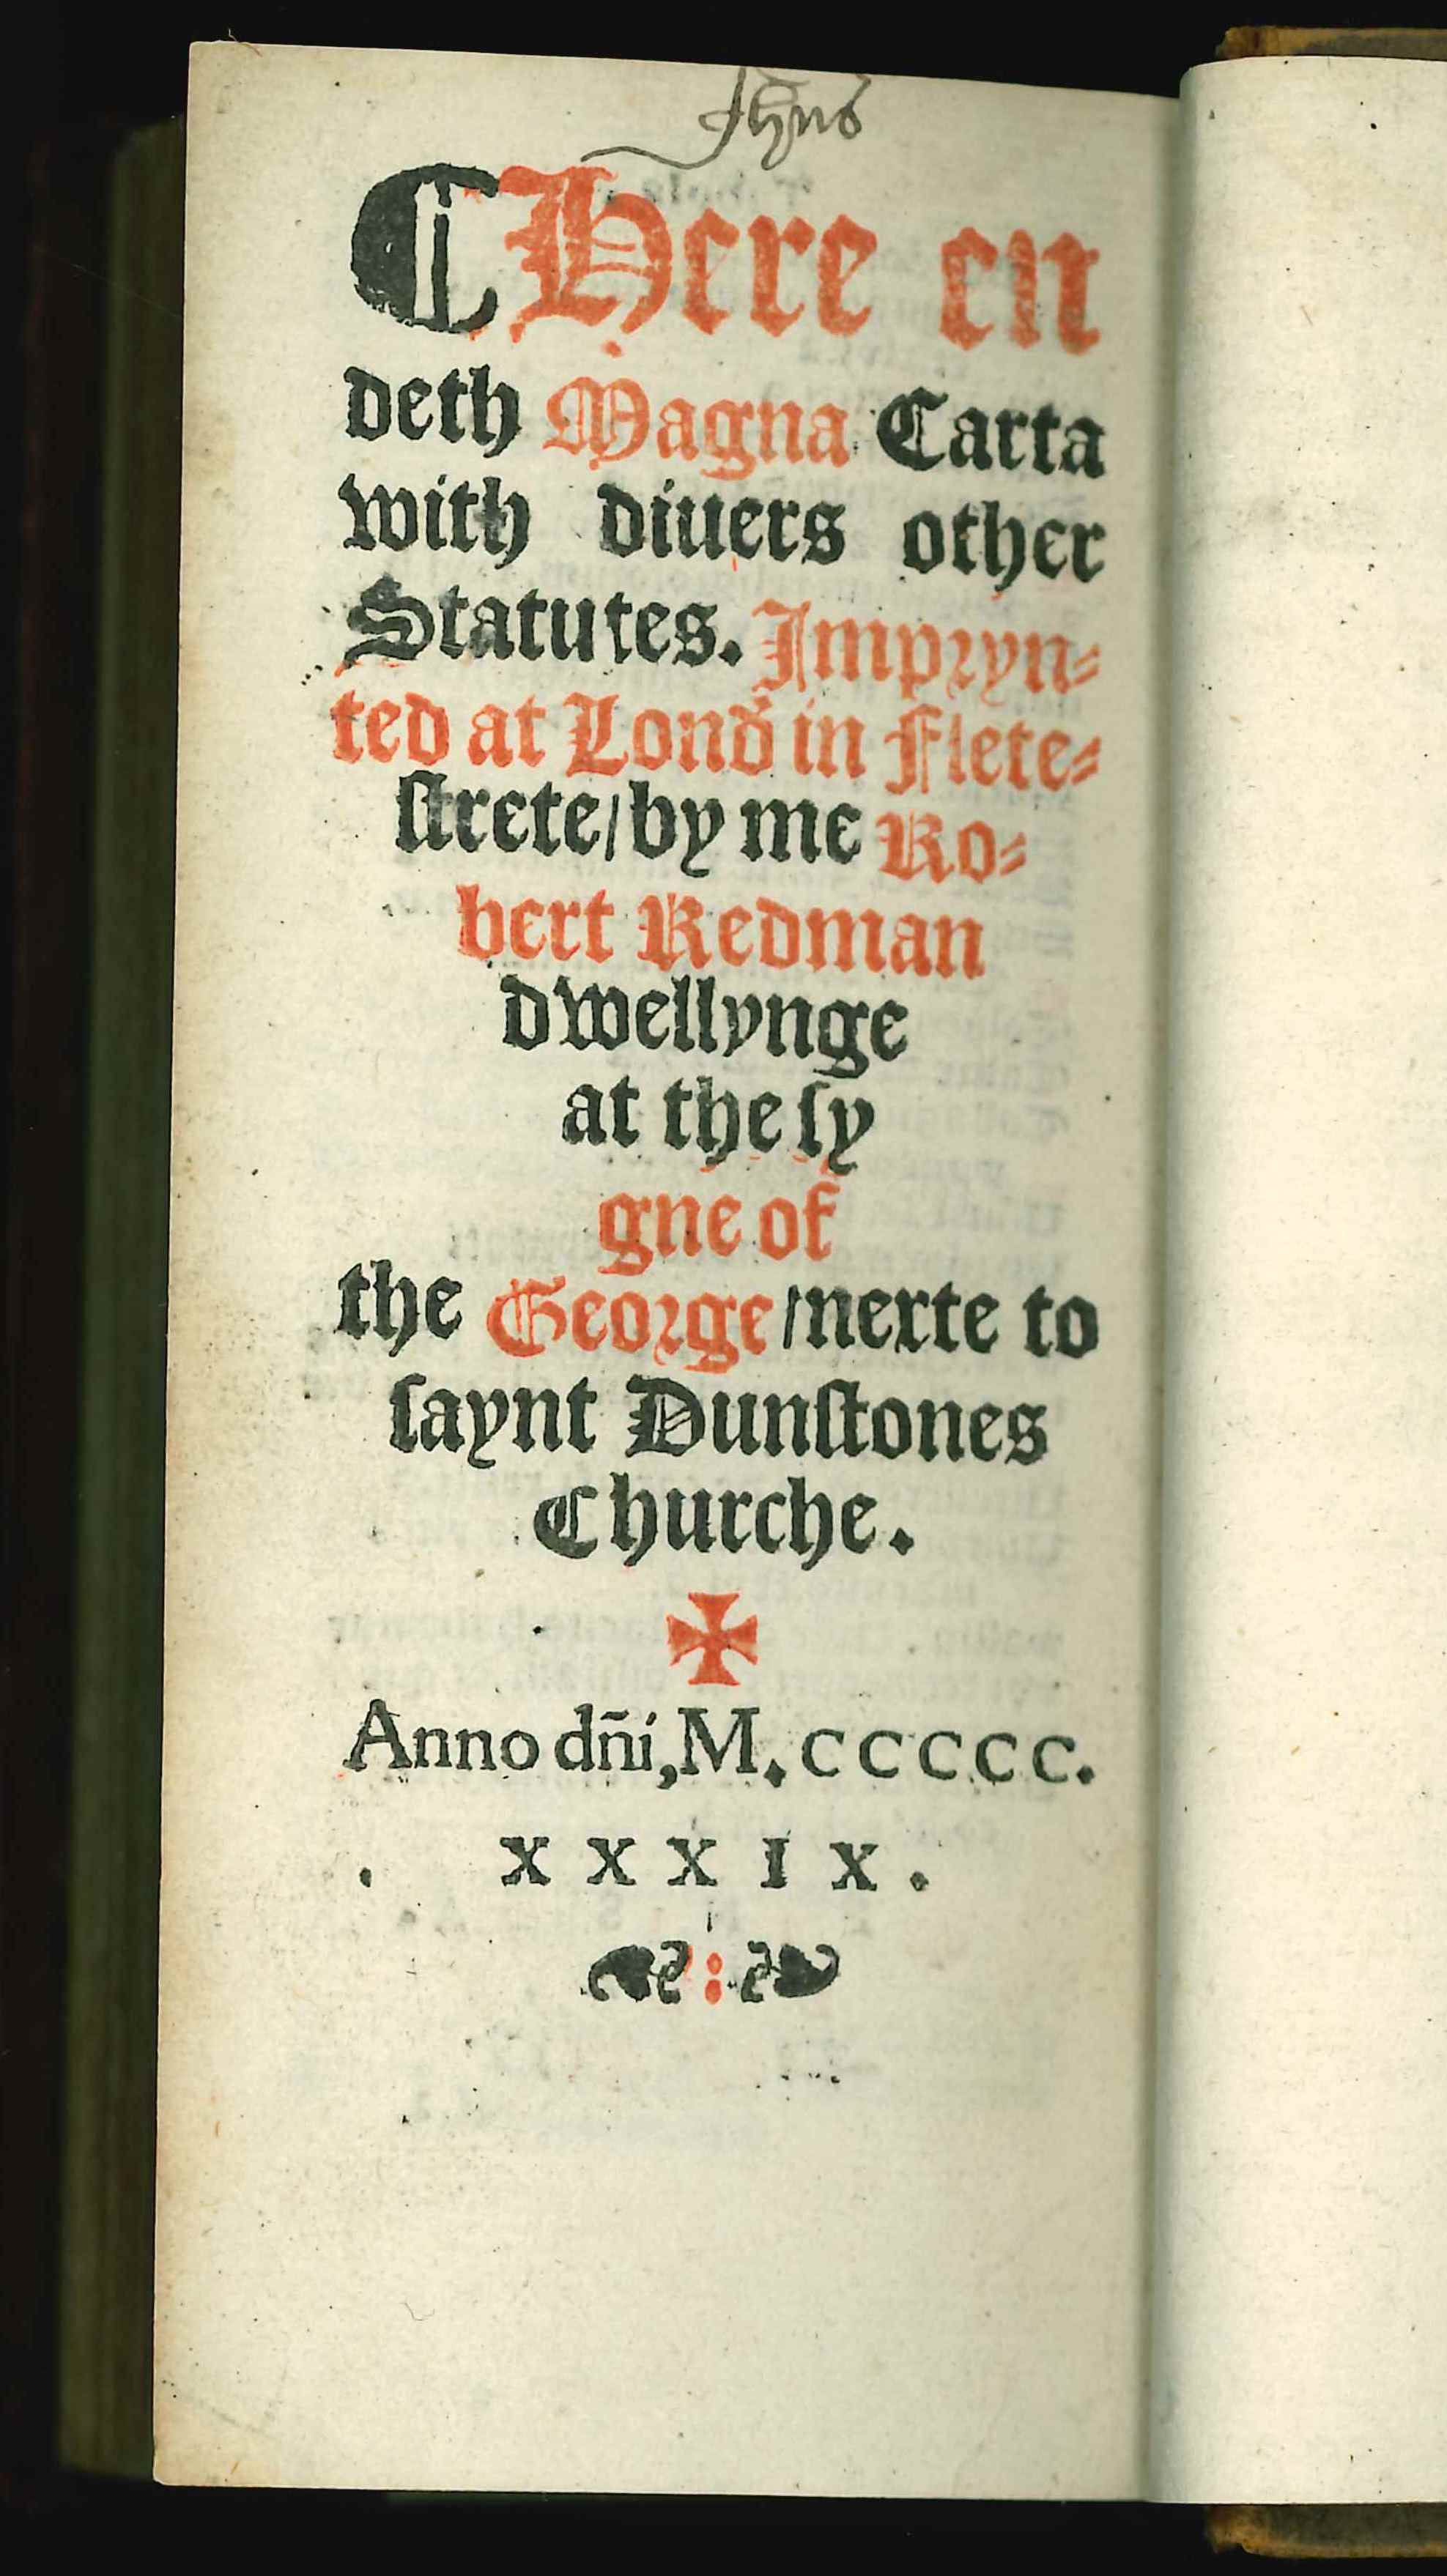 Jhus
¶Here en
deth Magna Carta
with diuers other
Statutes. Impryn⸗
ted at Lond̄ in Flete⸗
ſtrete/by me Ro⸗
bert Redman
dwellynge
at the ſy
gne of
the George/nexte to
ſaynt Dunſtones
Churche.
✠
Anno dn̄i, M. CCCCC.
. XXXIX .
☙ : ❧